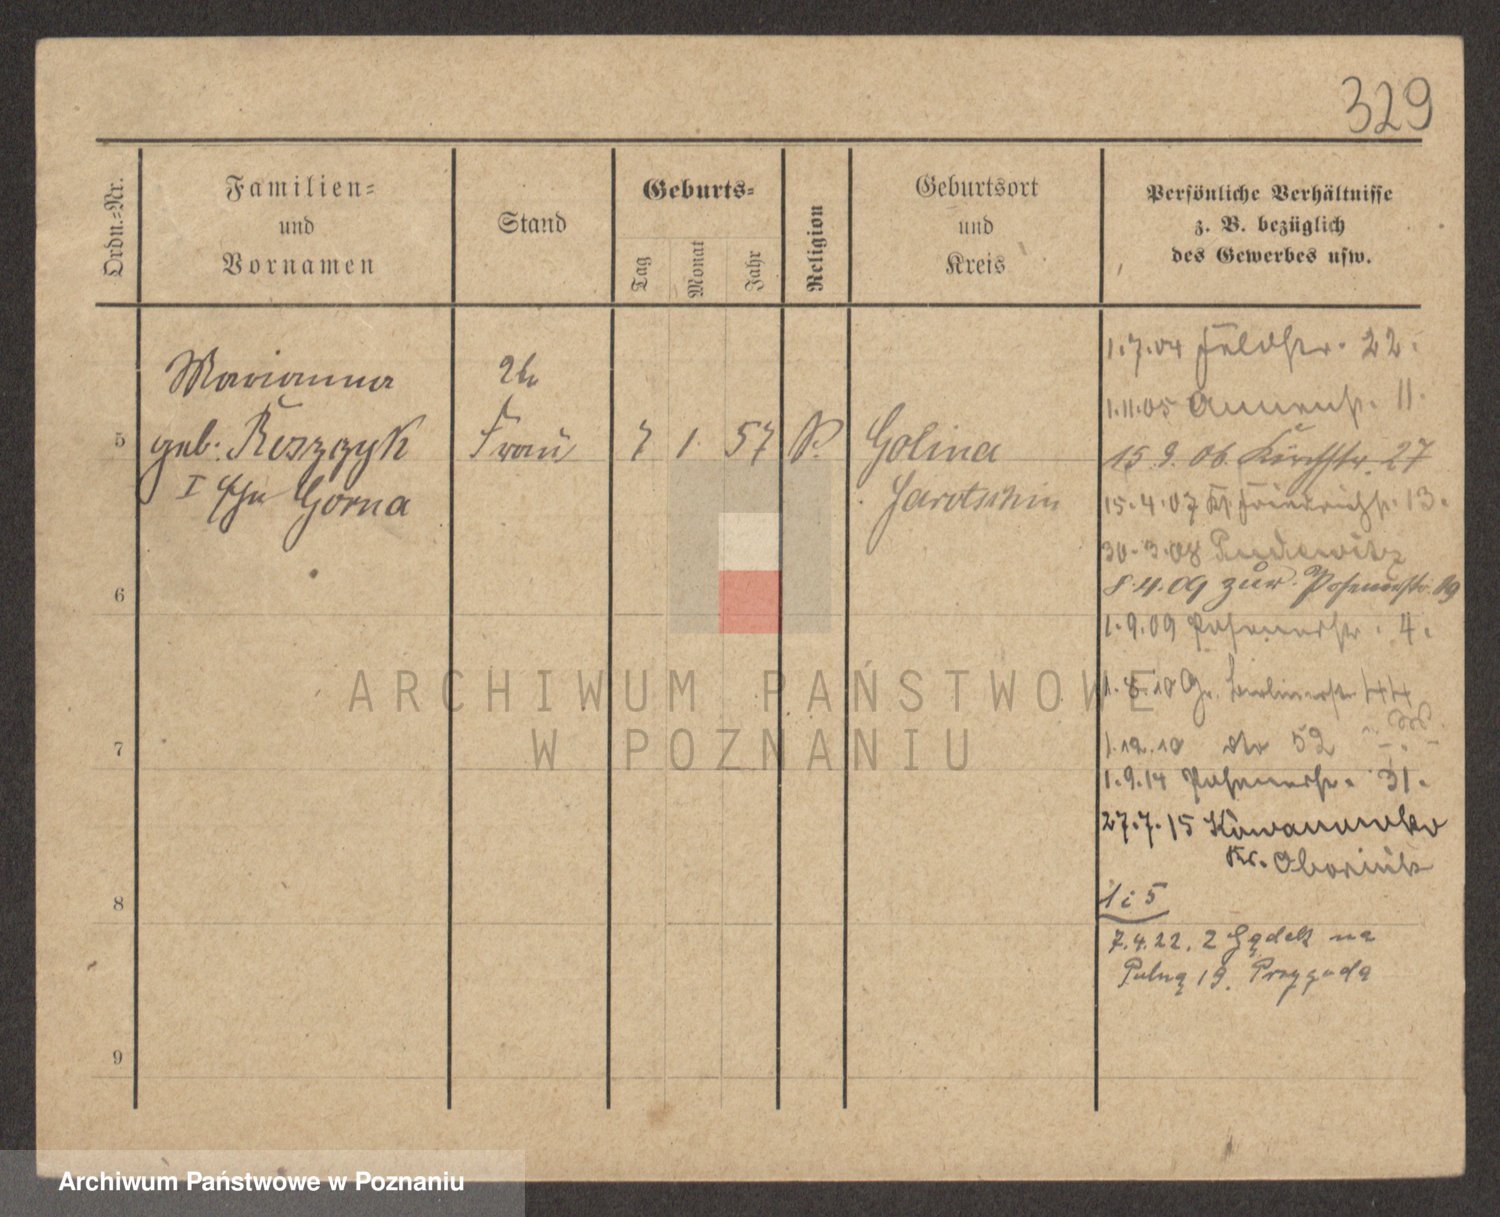 329
Ordn.=Nr.
Familien=
und
Vornamen
Stand
Geburts=
Tag
Monat
Jahr
Religion
Geburtsort
und
Kreis
Persönliche Verhältnisse
z. B. bezüglich
des Gewerbes usw.
Marianna
5 geb: Reszczyk
I Górna
Frau
7 1. 57
Golina
Jarotschin
1.7.04 Feldstr. 22.
1.11.05 Annenstr. 11.
15.9.06. Kirchstr. 27
15.4.07 Kl. Friedrichstr. 13.
30.3.08 Pudewitz
8.4.09 zur. Posenerstr. 19
1.9.09 Posenerstr. 4.
1.8.10 Gr. Berlinerstr. 44
1.12.10 dto 52
1.9.14 Posenerstr. 31.
27.7.15 Kowanowko
Kr. Obornik
1 i 5
7.4.22. Z Gądek na
Polną 19. Przygoda
6
7
8
9
ARCHIWUM PAŃSTWOWE
W POZNANIU
Archiwum Państwowe w Poznaniu